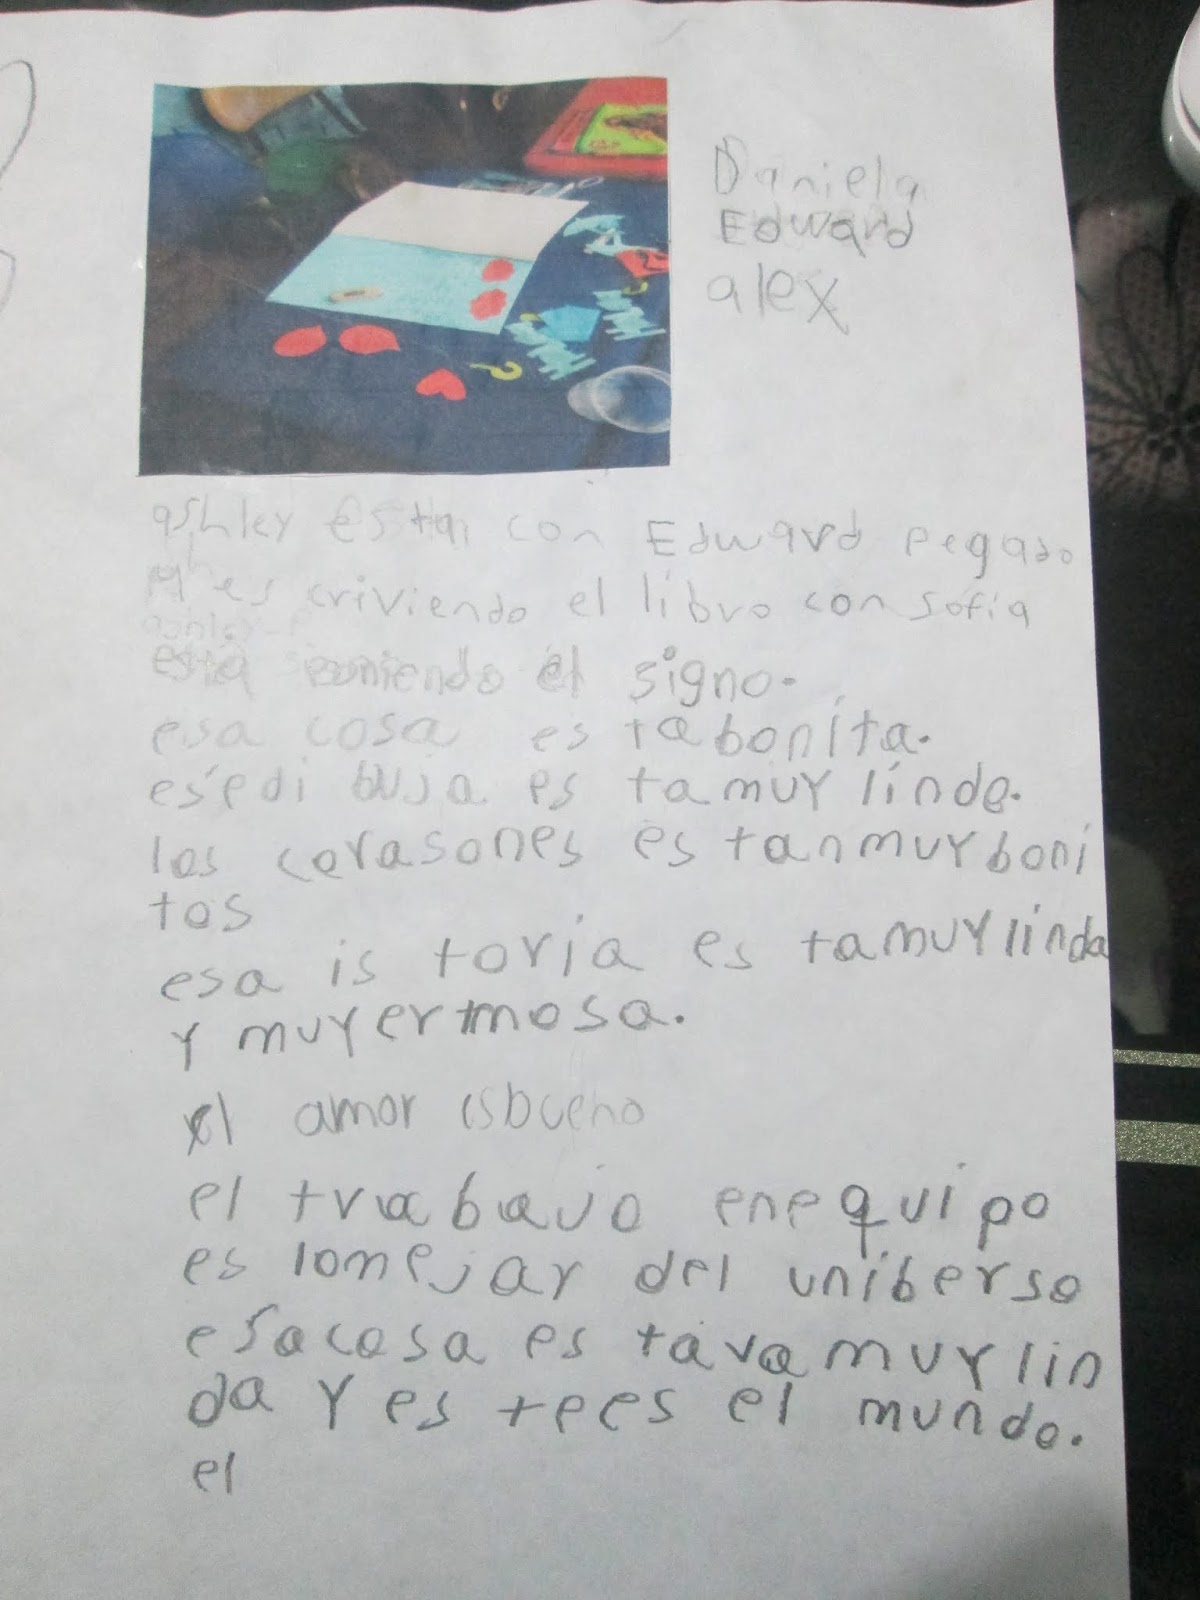 Daniela
Edward
alex
ashley estai con Edward pegado
es criviendo el libro con sofia
ashley
está poniendo el signo.
esa cosa es ta bonita.
ese di buja es ta muy linde.
los corasones es tan muy boni
tos
esa is toria es ta muy linda
y muy ermosa.
el amor es bueno
el trabajo en equipo
es lo mejar del uniberso
esa cosa es tava muy lin
da y es te es el mundo.
el